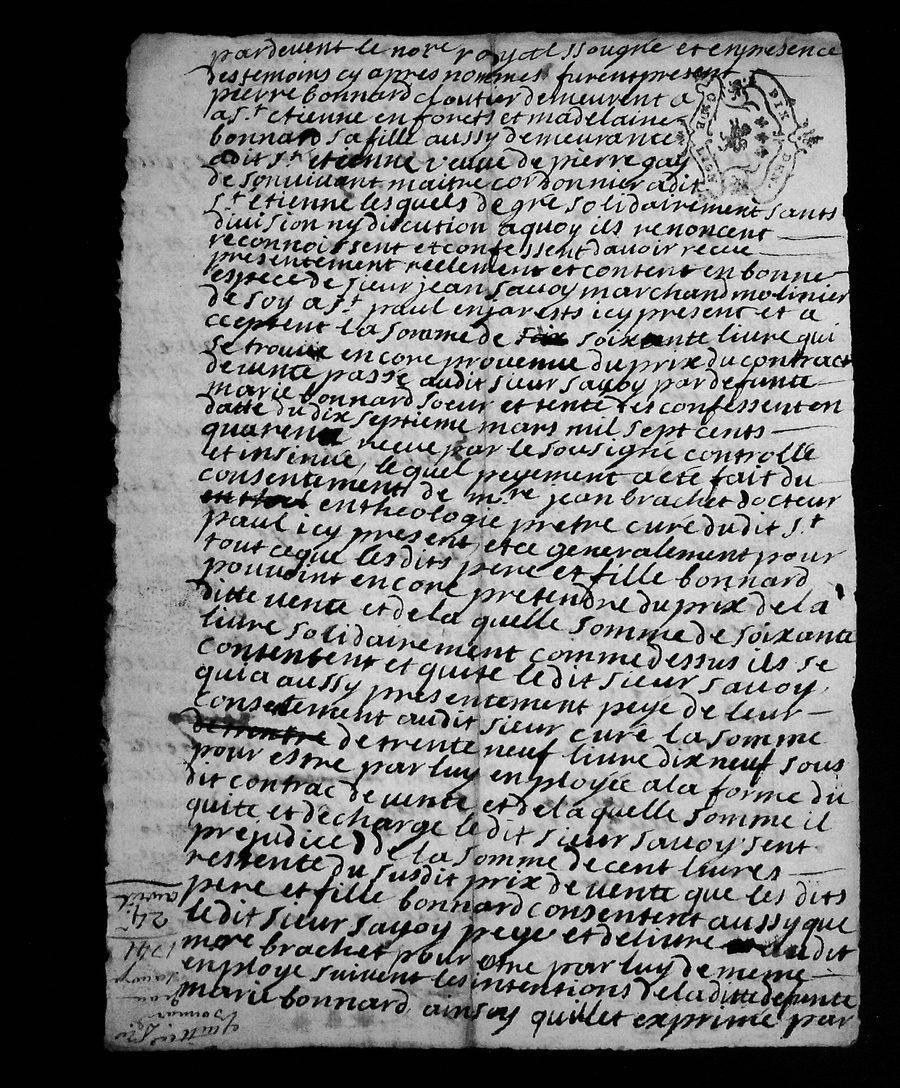 pardevent le nore royal ssougne et en presence
des temoins cy apres nommes furent present
pierre bonnard cloutier demeurent a
a st etienne en forets et madelaine
bonnard sa fille aussy demeurante
adit st etienne veuve de pierre gay
de son vivant maitre cordonnier adit
st etienne lesquels de gre solidairement sants
division ny discution a quoy ils renoncent
reconnoissent et confessent davoir receu
presentement reelement et content en bonne
espece de sieur jean savoy marchand molinier
de soy a st paul en jarests icy present et a
cceptent la somme de soixante livre qui
se trouve encore provenue du prix du contract
de vente passe audit sieur savoy par defunte
marie bonnard soeur et tente les confessent en
datte du dix septieme mars mil sept cents
quarente receu par le sousigne controlle
et insinue, lequel peyement a ete fait du
consentement de mre jean brachet docteur
en theologie pretre cure dudit st
paul icy present, et ce generalement pour
tout ce que lesdits pere et fille bonnard
pouvoint encore pretendre du prix de la
ditte vente et de la quelle somme de soixante
livre solidairement comme dessus ils se
contentent et quite ledit sieur savoy,
qui a aussy presentement peye de leur
consentement audit sieur cure la somme
de trente neuf livre dix neuf sous
pour estre par luy employée a la forme du
dit contrac de vente et de la quelle somme il
quite et decharge ledit sieur savoy sent
prejudice de la somme de cent livres
restente du susdit prix de vente que les dits
pere et fille bonnard consentent aussy que
ledit sieur savoy peye et delivre audit
mere brachet pour etre par luy de meme
employe suivent les intentions de la ditte defunte
marie bonnard, ainsy quil let exprime par
avril
24
1741
savoy
jean
bonnar
GNE LION
DIX DEN.